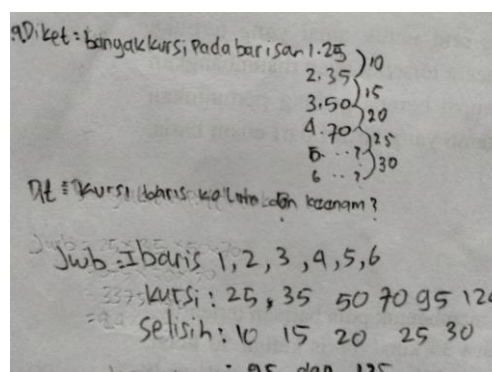 Diket = banyak kursi pada barisan 1.25 ) 10
2.35 ) 15
3.50 ) 20
4.70 ) 25
5. ..? ) 30
6 ..?
Dit = kursi baris ke lima dan keenam?
Jwb = baris 1, 2, 3, 4, 5, 6
kursi : 25, 35 50 70 95 12
Selisih : 10 15 20 25 30
: 95 dan 125